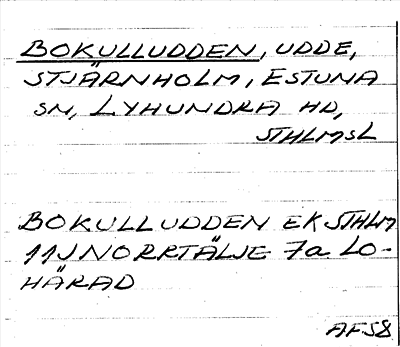 BOKULLUDDEN, UDDE,
STJÄRNHOLM, ESTUNA
SN, LYHUNDRA HD,
STHLMSL
BOKULLUDDEN EK STHLM
11J NORRTÄLJE 7a LO-
HÄRAD
AFS8